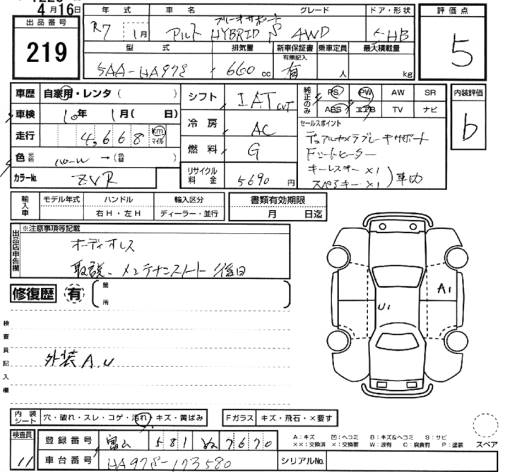 4月16日
出品番号
219
年式 車名 グレード ドア・形状
R7 1月 アルト ブレーキサポート HYBRID S 4WD 5 HB
型式 排気量 新車保証書 乗車定員 最大積載量
有無記入
5AA-HA97S 660 cc 有 人 kg
評価点
5
車歴 自家用・レンタ( )
車検 10年 1月( 日)
走行 4,668 km マイル
色 →( )
カラーNo. ZVR
シフト IAT CVT
冷房 AC
燃料 G
リサイクル料金 5690 円
純正のみ PS PW AW SR
ABS エアB TV ナビ
セールスポイント
デュアルカメラブレーキサポート
シートヒーター
キーレスキー×1
スペアキー×1
内装評価
b
輸入車 モデル年式 ハンドル 輸入区分
年 右H・左H ディーラー・並行
書類有効期限
月 日迄
出品店申告欄 ※注意事項等記載
オーディオレス
取説、メンテナンスノート後日
修復歴 有 箇所
検査員記入欄
外装A,U
U1
A1
内装シート 穴・破れ・スレ・コゲ・汚れ・キズ・黄ばみ
Fガラス キズ・飛石・×要す
検査員 11
登録番号 富山 581 ぬ 7670
車台番号 HA97S-173580
シリアルNo.
A:キズ 凹:ヘコミ B:キズ&ヘコミ S:サビ
××:交換済 ×:交換要 W:波有 C:腐食有 P:塗装
スペア